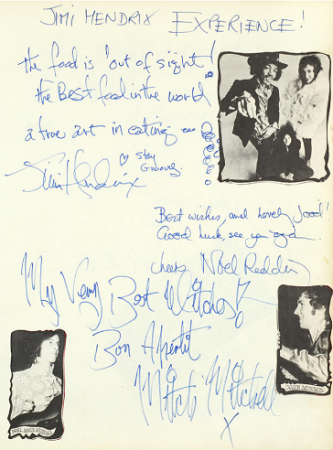 JIMI HENDRIX EXPERIENCE!
the food is 'out of sight'!
the Best food in the world
a true art in eating ---
Stay
Groovy
Jimi Hendrix
Best wishes, and lovely food!
Good luck, see you again.
cheers Noel Redding
My Very Best Wishes!
Bon Apetit
Mitch Mitchell
X